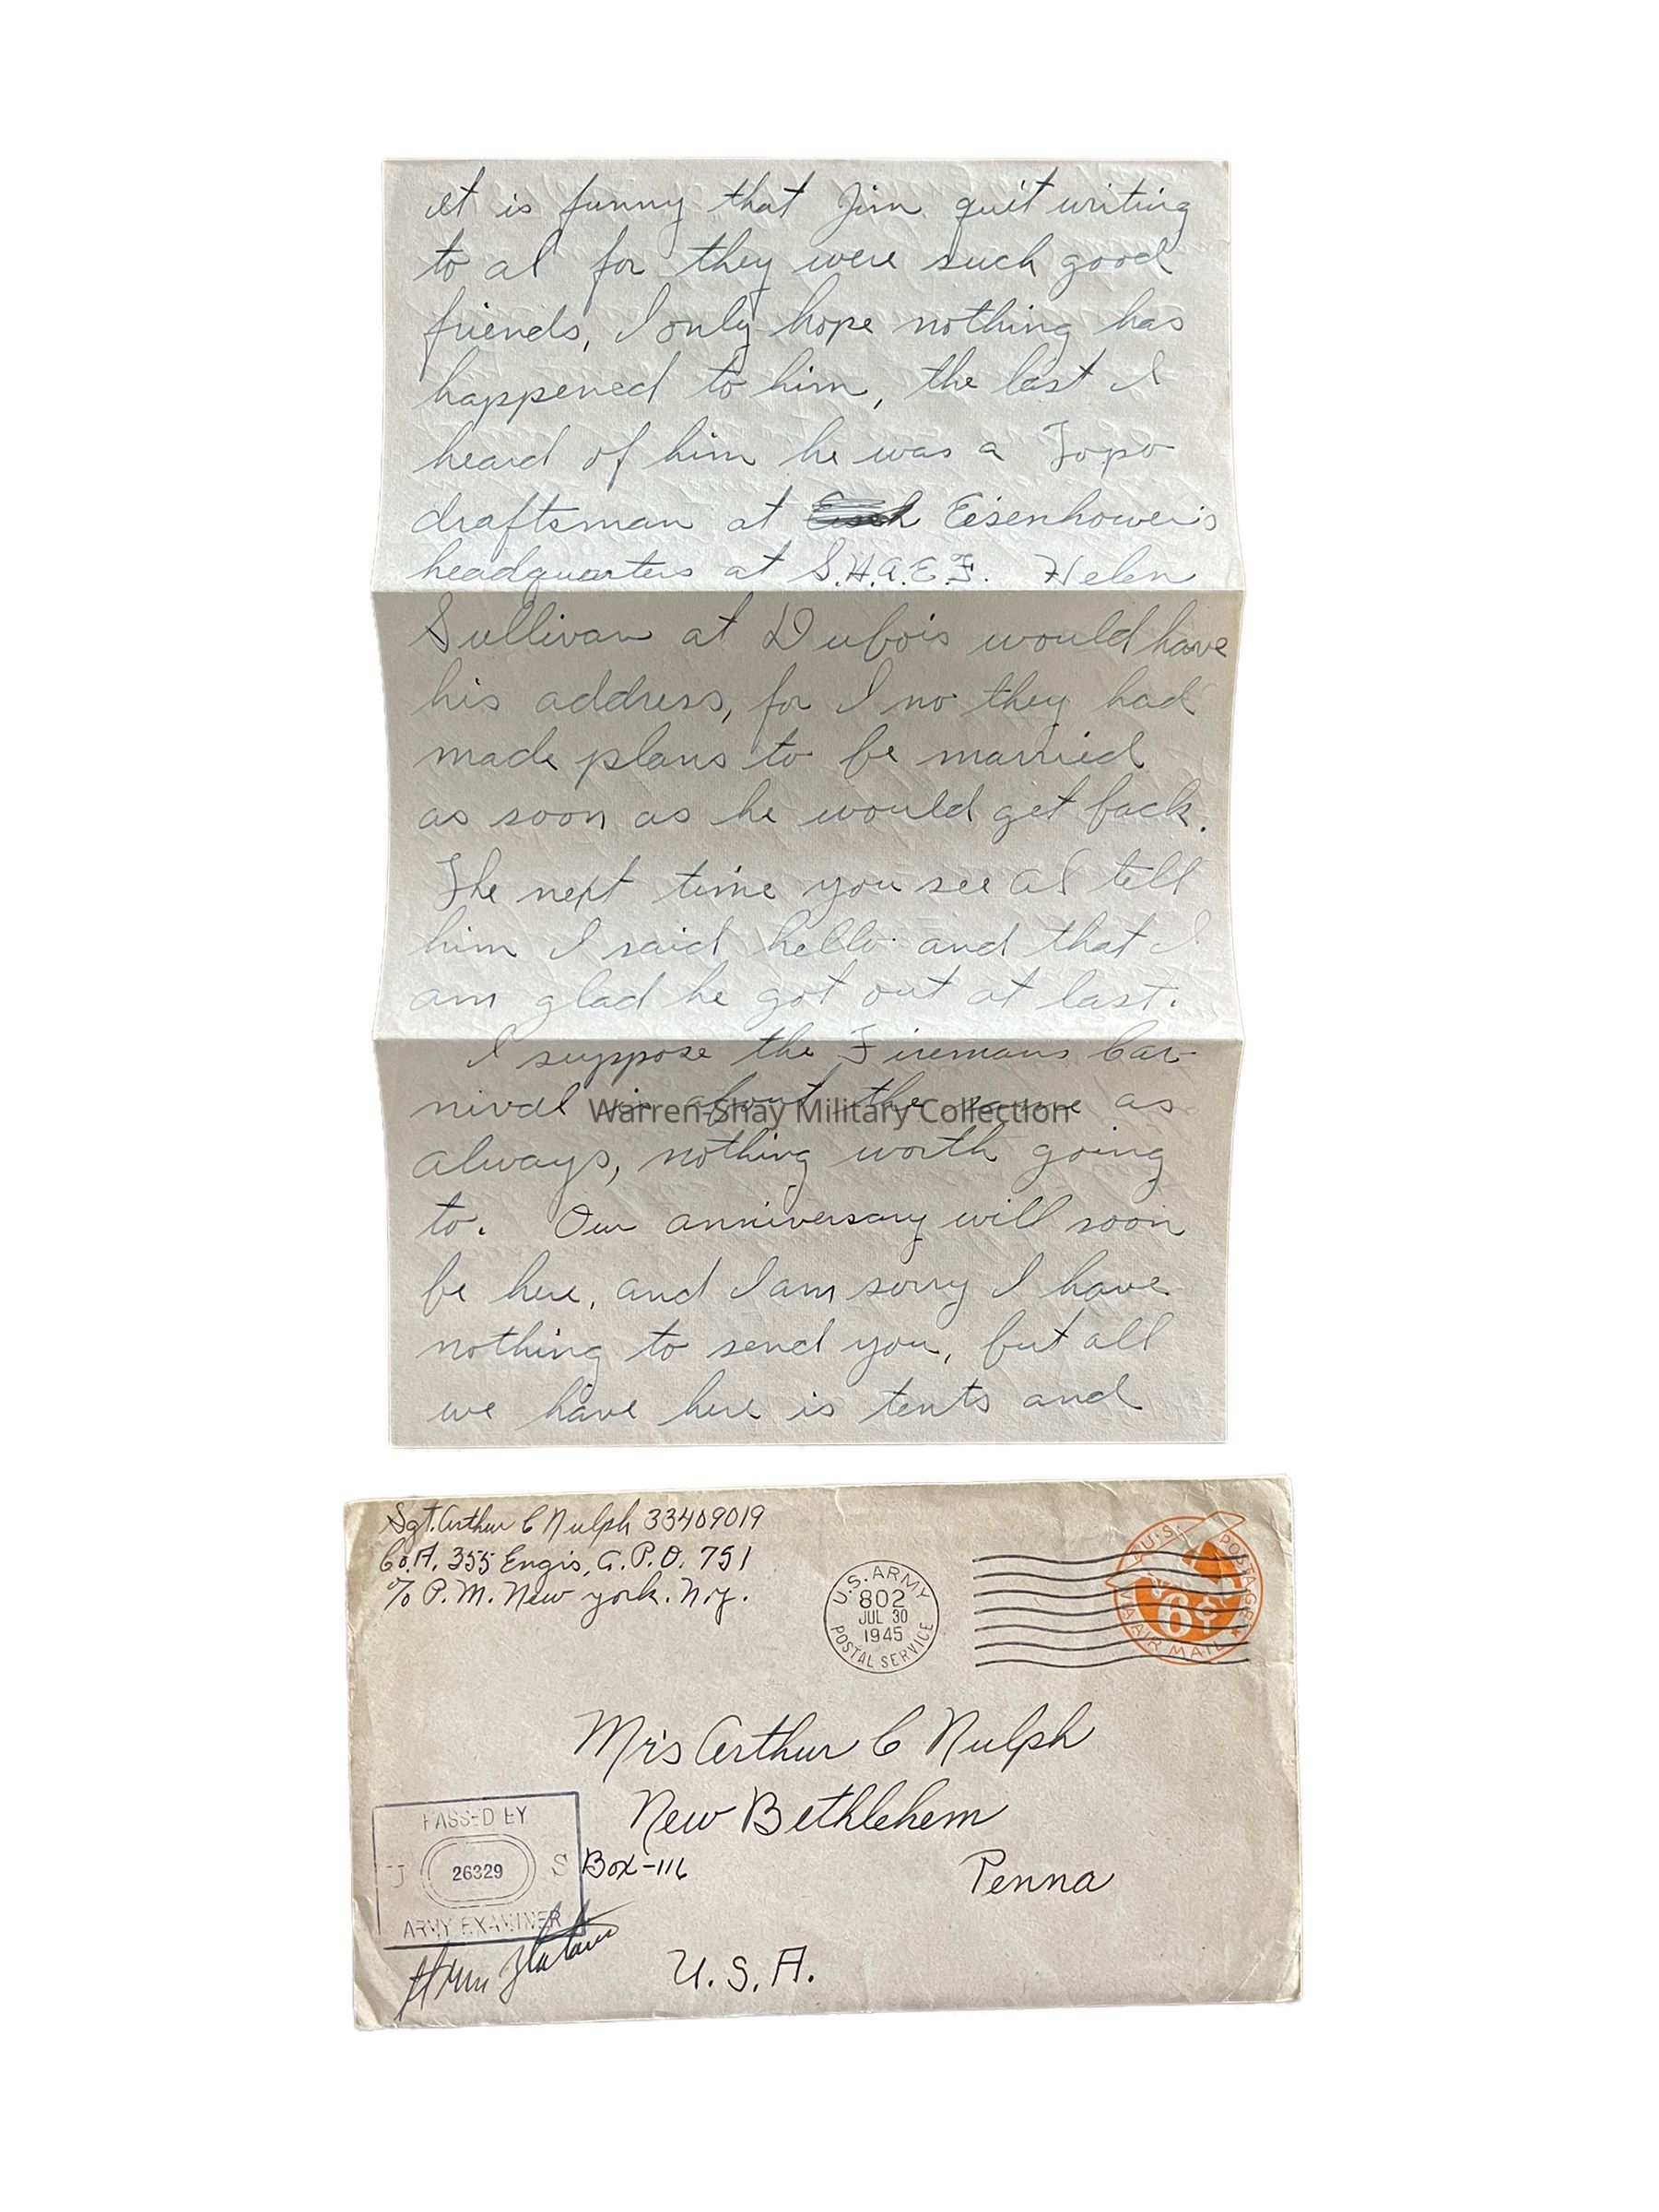 It is funny that Jim quit writing
to al for they were such good
friends, I only hope nothing has
happened to him, the last I
heard of him he was a Topo
draftsman at Eisenhower's
headquarters at S.H.A.E.F. Helen
Sullivan at Dubois would have
his address, for I no they had
made plans to be married
as soon as he would get back.
The next time you see Al tell
him I said hello and that I
am glad he got out at last.
I suppose the Firemans Car-
nival is about the same as
always, nothing worth going
to. Our anniversary will soon
be here, and I am sorry I have
nothing to send you, but all
we have here is tents and
Warren-Shay Military Collection
Sgt. Arthur C Nulph 33409019
Co. A. 355 Engis, A.P.O. 751
% P.M. New york. N.y.
U.S. ARMY
802
JUL 30
1945
POSTAL SERVICE
U.S. POSTAGE
6¢
VIA AIR MAIL
Mrs Arthur C Nulph
New Bethlehem
Box-116
Penna
U.S.A.
PASSED BY
U 26329 S
ARMY EXAMINER